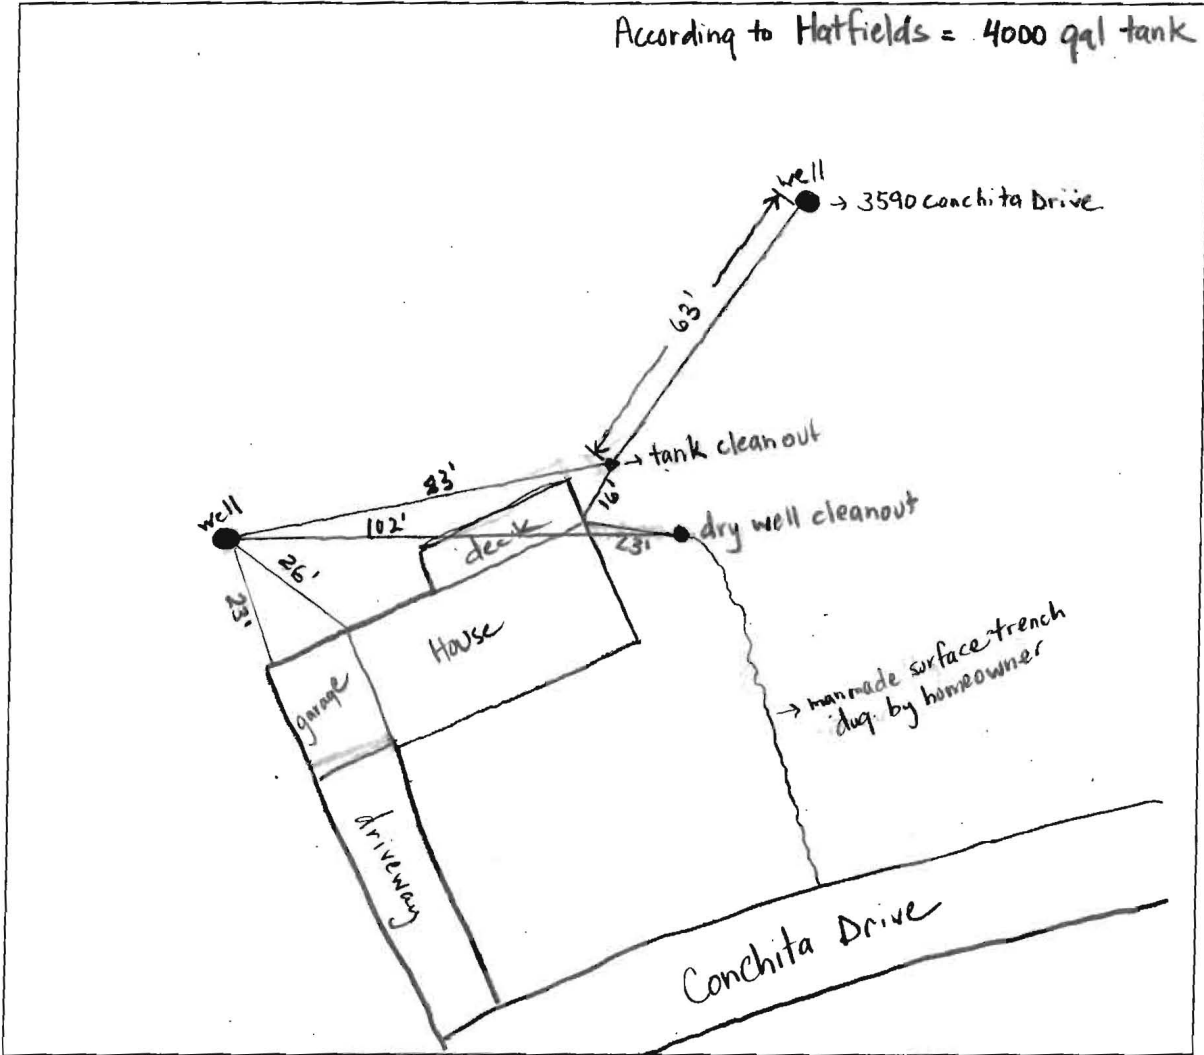 According to Hatfields = 4000 gal tank
well
→ 3590 Conchita Drive
63'
→ tank cleanout
83'
16'
well
102'
deck
23'
dry well cleanout
26'
23'
House
garage
→ manmade surface trench
dug by homeowner
driveway
Conchita Drive